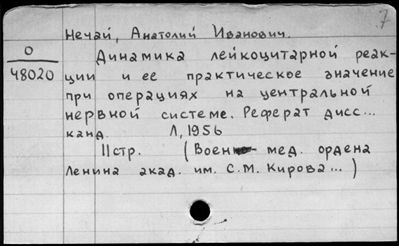 7
Нечай, Анатолий Иванович.
О
48020
Динамика лейкоцитарной реак-
ции и ее практическое значение
при операциях на центральной
нервной системе. Реферат дисс...
канд. Л, 1956
11стр. (Военно- мед. ордена
Ленина акад. им. С.М. Кирова...)